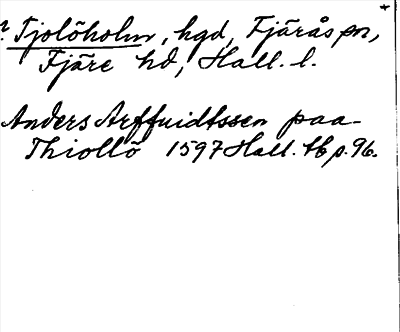 ? Tjolöholm, hgd, Fjärås sn,
Fjäre hd, Hall. l.
Anders Arffuidtssen paa
Thiollö 1597 Hall. tb p. 96.